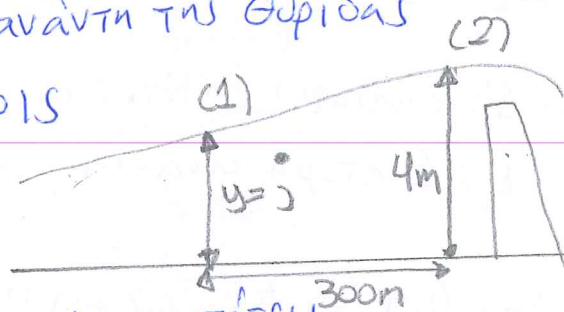 ανάντη της θυρίδας
(2)
(1)
y=;
4m
300m